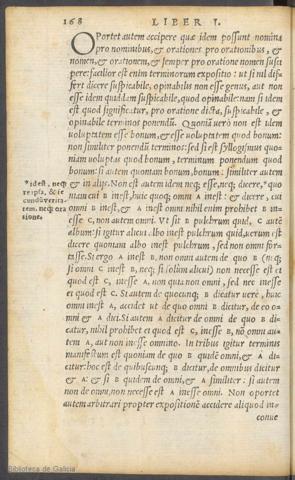 168 LIBER I.
OPortet autem accipere quæ idem possunt nomina
pro nominibus, & orationes pro orationibus, &
nomen, & orationem, & semper pro oratione nomen susci
pere: facilior est enim terminorum expositio: ut si nil dif
fert dicere suspicabile, opinabilis non esse genus, aut non
esse idem quiddam suspicabile, quod opinabile: nam si idem
est quod significatur, pro oratione dicta, suspicabile, &
opinabile terminos ponendū. Quoniā uerò non est idem
uoluptatem esse bonum, & esse uoluptatem quod bonum:
non similiter ponendū terminos: sed si est syllogismus quo-
niam uoluptas quod bonum, terminum ponendum quod
bonum: si autem quoniam bonum, bonum: similiter autem
& in alijs. Non est autem idem neq; esse, neq; dicere, *quo
niam cui B inest, huic quoq; omni A inest: & dicere, cui
omni B inest, & A inest omni nihil enim prohibet B in-
esse C, non autem omni. Vt sit B pulchrum quid, C autē
album: si igitur alicui albo inest pulchrum quid, uerum est
dicere quoniam albo inest pulchrum, sed non omni for-
tasse. Si ergo A inest B, non omni autem de quo B (neq;
si omni C inest B, neq; si (olim alicui) non necesse est et
quod est C, inesse A, non quia non omni, sed nec inesse
et quod est C. Si autem de quocunq; B dicatur uerè, huic
omni inest A, accidet ut de quo omni B dicitur, de eo om
ni & A dici. Si autem A dicitur de omni de quo B di-
catur, nihil prohibet et quod est C, inesse B, nō omni au-
tem A, aut non inesse omnino. In tribus igitur terminis
manifestum est quoniam de quo B quidē omni, & A di-
citur: hoc est de quibuscunq; B dicitur, de omnibus dicitur
& A: & si B quidem de omni, & A similiter: si autem
non de omni, non necesse est A inesse omni. Non oportet
autem arbitrari propter expositionē accidere aliquod in-
conue
*idest, neq;
Biblioteca de Galicia